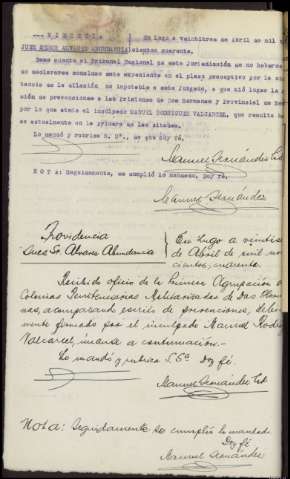 --- P R O V I D E N C I A En Lugo a veintitres de Abril de mil n
JUEZ SEÑOR ALVAREZ ABUNDANCIA cientos cuarenta.
Dese cuenta al Tribunal Regional de esta Jurisdicción de no haberse
declararse concluso este expediente en el plazo preceptivo por la
tencia no la situación no imputable a este Juzgado, a que dió lugar la
ción de prevenciones a las Prisiones de Dos Hermanas y Provincial de
por lo que atañe al inculpado MANUEL RODRIGUEZ VALCARCEL, que resulta
se actualmente en la primera de las citadas.
Lo mandó y rubrica S. Sª., de que doy fé.
Manuel Fernández
NOTA: Seguidamente, se cumplió lo mandado, Doy fé.
Manuel Fernández
Providencia
Juez Sr. Alvarez Abundancia
En Lugo a veintise
de Abril de mil nove
cientos cuarenta.
Recibido oficio de la Primera Agrupación de
Colonias Penitenciarias Militarizadas de Dos Herma
nas, acompañando escrito de prevenciones, debida
mente firmado por el inculpado Manuel Rodri
Valcarcel, únanse a continuación.-
Lo mandó y rubrica S.Sª Doy fé.
Manuel Fernández
Nota: Seguidamente se cumplió lo mandado
Doy fé
Manuel Fernández